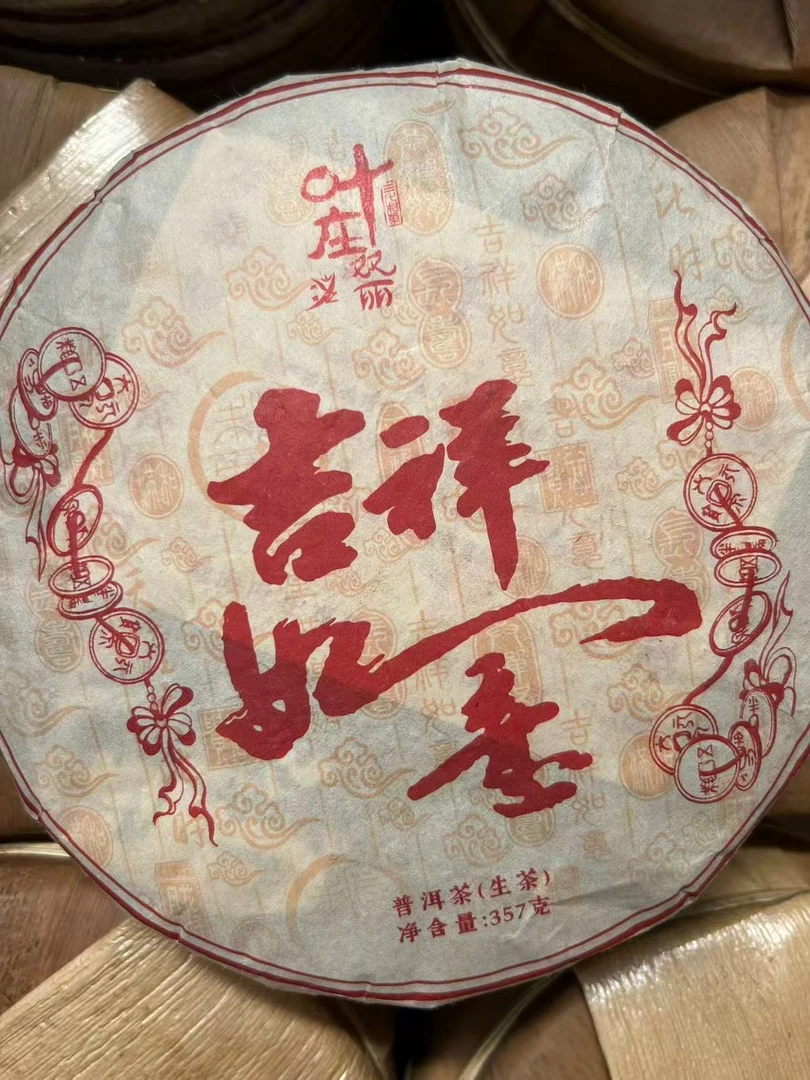 叶
庄
双
丽
吉祥
如意
普洱茶(生茶)
净含量:357克